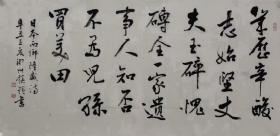 幾歷辛酸
志始堅丈
夫玉碎愧
磚全一家遺
事人知否
不為兒孫
買美田
日本西鄉隆盛詩
辛丑之夏湖州書